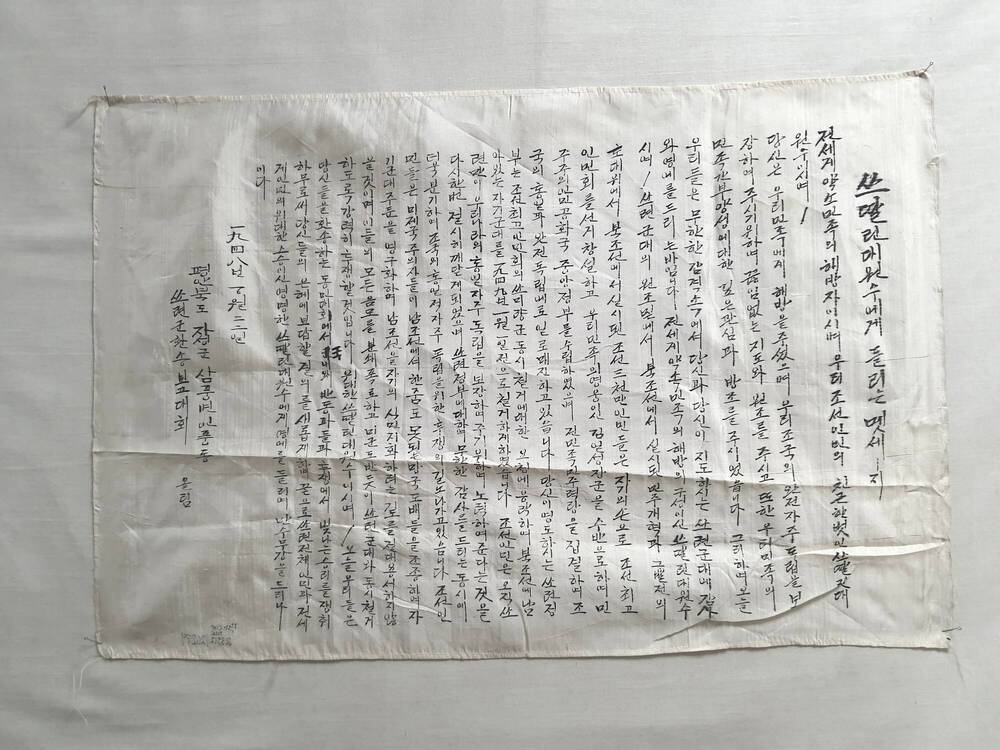 쓰딸린대원수에게 들리는 멧세ー지
전세게 약소민족의 해방자이시며 우리조선인민의 친근한벗인 쓰딸린대
원수이시여!
당신은 우리민족에게 해방을주셨으며 우리조국의 완전자주독립을 보
장하여 주시기위하여 끊임없는 지도와 원조를 주시고 또한 우리민족의
민족간부양성에대한 깊은관심과 방조를 주시었습니다 그러하며 오늘
우리들은 무한한 감격속에서 당신과 당신이 지도하시는 쓰련군대에 감사
와영예를드리는바입니다 전세게약소민족의 해방의 구성이신 쓰딸린대원수
시여! 쓰련군대의 원조밑에서 북조선에서 실시된 민주개혁과 그발전의
토대위에서 북조선에서 실시된 조선三천만인민들은 자기의손으로 조선최고
인민회를선거창설하고 우리민족의영웅인 김일성장군을 수반으로하며 민
주주의인민공화국 중앙정부를수립하였으며 전민족주력량을 집결하여 조
국의 통일과 완전독립에로 일로매진하고있습니다 당신이영도하시는 쓰련정
부는 조선최고인민회의 쓰미량군동시철거에대한 요청에 응락하여 북조선에남
아있는 자기군대를 一九四九年一월一일전으로 철거하게하였습니다 조선인민은 오직 쓰
련만이 우리나라의 통일자주독립을 보장하여 주기위하여 노력하여준다는것을
다시한번 절실히 깨닫게되었으며 쓰련정부에대하여 무한한 감사를드리는동시에
더욱분기하여 조국의 통일과자주 독립을위한투쟁의길로나가고있습니다 조선인
민들은 미제국주의자들이 남조선에서 한줌도 못되는매국도배들을 조종하여 자
기군대주둔을 영구화하며 남조선을자기의 식민지화하려는 것을절대용서하지않
을것이며 이들의 모든음모를 분쇄폭로하고 미군도반듯이 쓰련군대와 동시철거
하도록강력히투쟁할것입니다 위대한쓰딸린대원수이시여! 오늘우리들은
당신들을환송하는 동민대회에서 국내외 반동파들과 투쟁에서 빛나는승리를쟁취
하므로써 당신들의 은헤에보답할 결의를 새롭게하며 끝으로쓰련전체인민과 전세
게인민의위대한스승이신영명한쓰딸린대원수에게 영예를들리며 만수무강을드리나
이다
一九四八년 十월二三일
평북도 자성군 삼풍면인풍동
쓰련군환송보고대회
올림